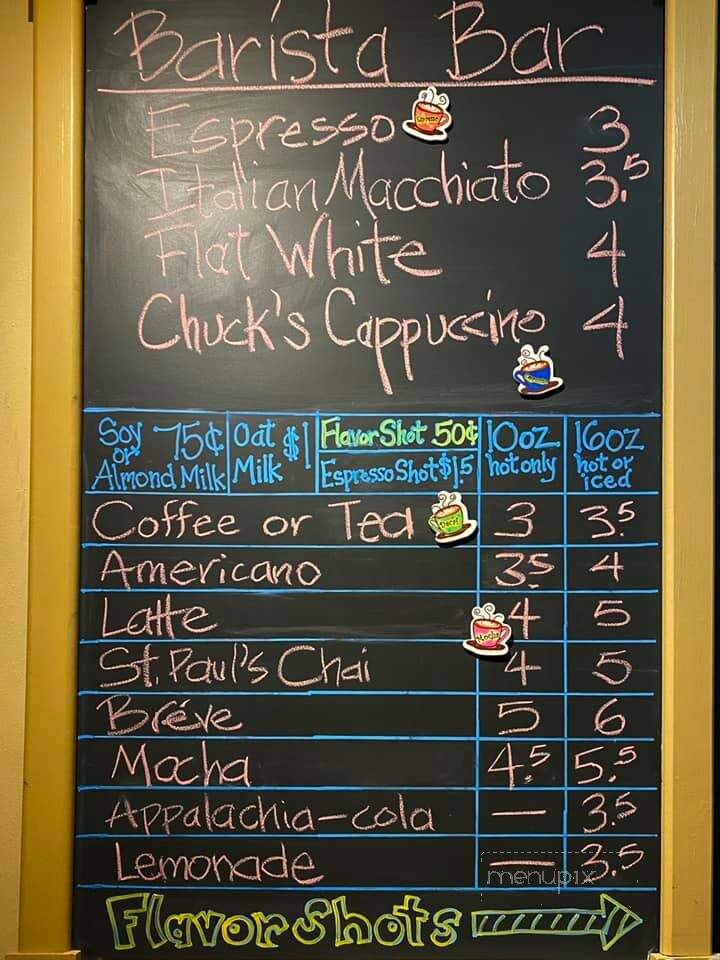 Barista Bar
Espresso 3
Italian Macchiato 3.5
Flat White 4
Chuck's Cappuccino 4
Soy or Almond Milk 75¢
Oat Milk $1
Flavor Shot 50¢
Espresso Shot $1.5
10oz hot only
16oz hot or iced
Coffee or Tea Decaf 3 3.5
Americano 3.5 4
Latte 4 5
Mocha
St. Paul's Chai 4 5
Bréve 5 6
Mocha 4.5 5.5
Appalachia-cola — 3.5
Lemonade — 3.5
menupix
Flavor Shots